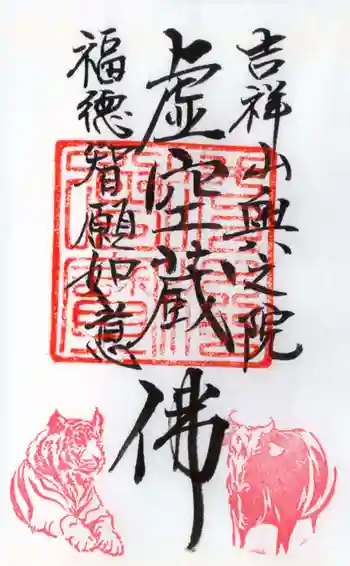 吉祥山興之院
虚空蔵佛
福德智願如意